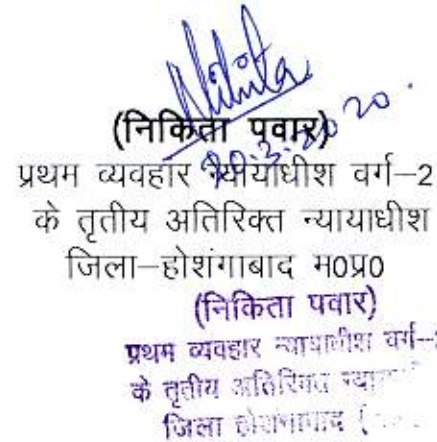 Nikita
(निकिता पवार)
20.3.2020.
प्रथम व्यवहार न्यायाधीश वर्ग–2
के तृतीय अतिरिक्त न्यायाधीश
जिला–होशंगाबाद म0प्र0
(निकिता पवार)
प्रथम व्यवहार न्यायाधीश वर्ग-2
के तृतीय अतिरिक्त
जिला होशंगाबाद (